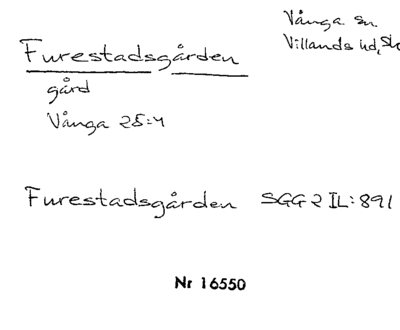 Vånga sn.
Villands hd, Sk
Furestadsgården
gård
Vånga 25:4
Furestadsgården SGG 2 IL:891
Nr 16550